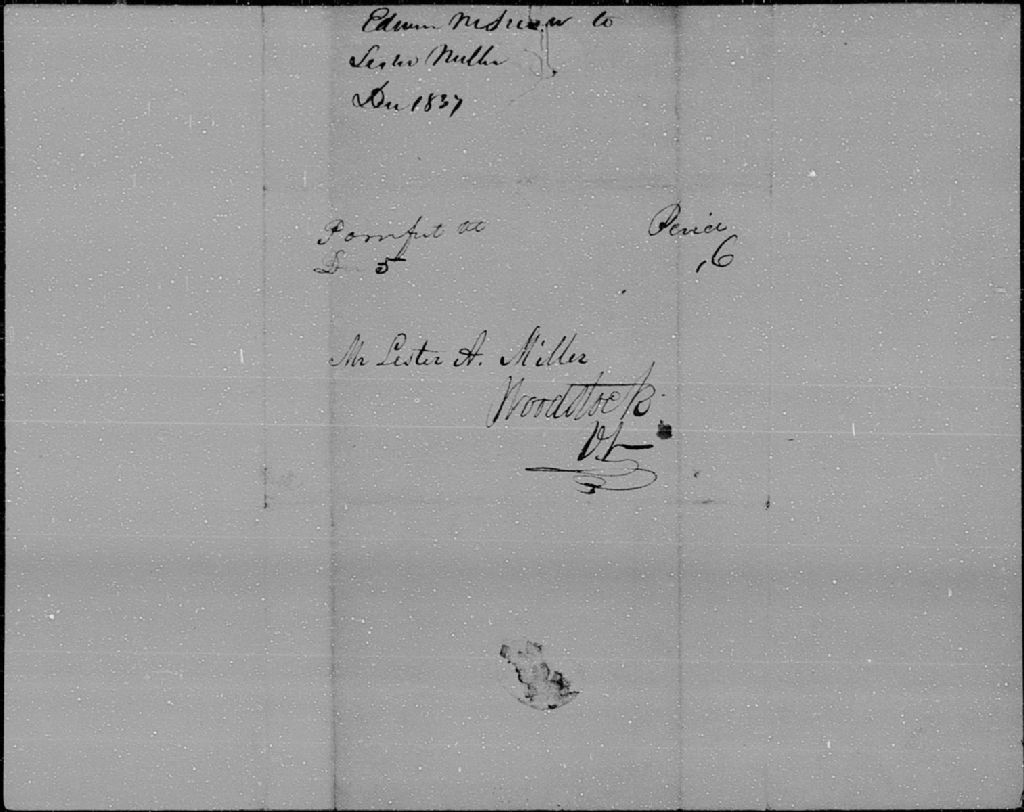 Edwin M Snow to
Lester Miller
Dec 1837
Pomfret Vt
Dec 5
6
Mr Lester A. Miller
Woodstock
Vt